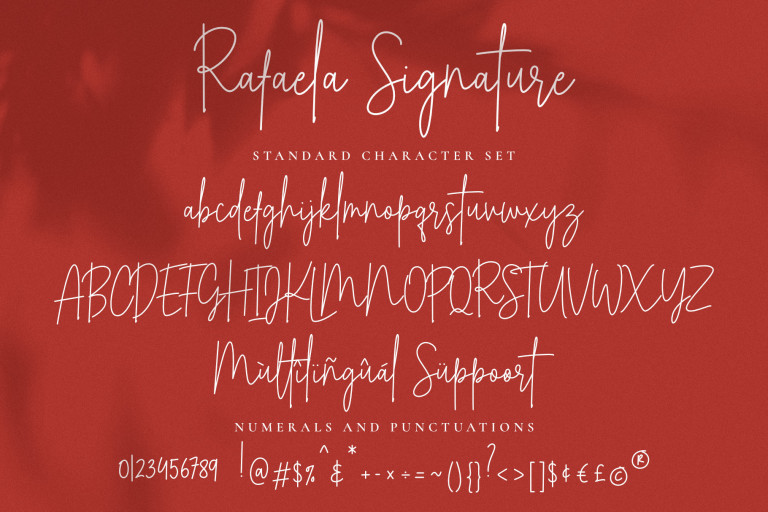 Rafaela Signature
STANDARD CHARACTER SET
abcdefghijklmnopqrstuvwxyz
ABCDEFGHIJKLMNOPQRSTUVWXYZ
Mùltîlïñgûál Süppøort
NUMERALS AND PUNCTUATIONS
0123456789 !@#$%^&*+-x÷=~(){}?<>[]$¢€£©®